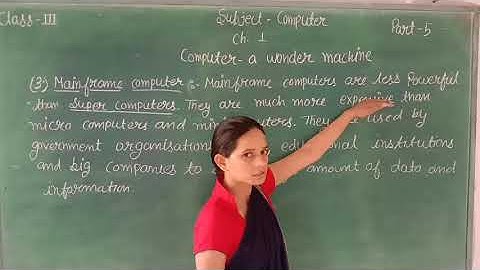 Class-III
Subject - Computer
Part-5
Ch. 1
Computer- a wonder machine
(3) Mainframe computer :- Mainframe computers are less Powerful
than Super computers. They are much more expensive than
micro computers and min puters. They are used by
government organisation educational institutions
and big companies to amount of data and
information.